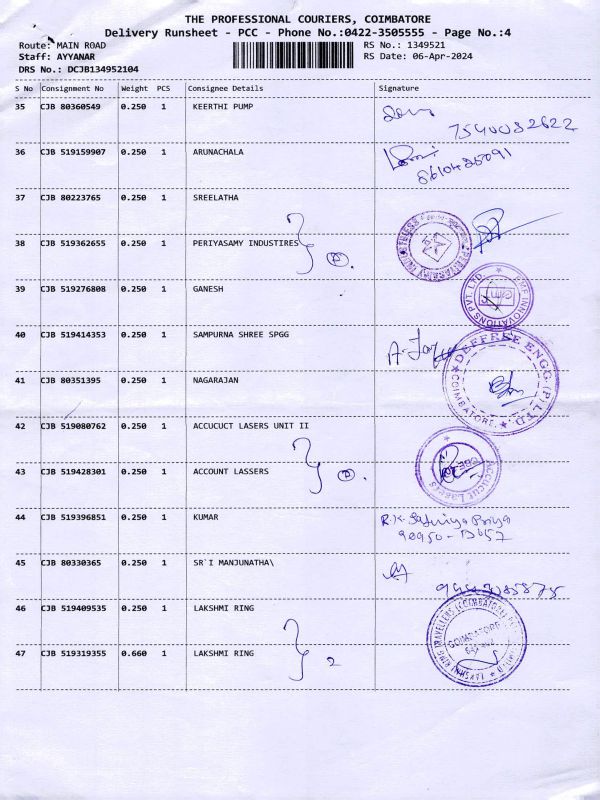 THE PROFESSIONAL COURIERS, COIMBATORE
Delivery Runsheet - PCC - Phone No.:0422-3505555 - Page No.:4
Route: MAIN ROAD RS No.: 1349521
Staff: AYYANAR RS Date: 06-Apr-2024
DRS No.: DCJB134952104
S No Consignment No Weight PCS Consignee Details Signature
35 CJB 80360549 0.250 1 KEERTHI PUMP
7540032622
36 CJB 519159907 0.250 1 ARUNACHALA
37 CJB 80223765 0.250 1 SREELATHA
38 CJB 519362655 0.250 1 PERIYASAMY INDUSTIRES
39 CJB 519276808 0.250 1 GANESH
INNOVATIONS PVT. LTD.
40 CJB 519414353 0.250 1 SAMPURNA SHREE SPGG
DEFFREE ENGG (P) LTD.
COIMBATORE.
41 CJB 80351395 0.250 1 NAGARAJAN
42 CJB 519080762 0.250 1 ACCUCUCT LASERS UNIT II
43 CJB 519428301 0.250 1 ACCOUNT LASSERS
44 CJB 519396851 0.250 1 KUMAR
45 CJB 80330365 0.250 1 SR`I MANJUNATHA\
46 CJB 519409535 0.250 1 LAKSHMI RING
COIMATORE
47 CJB 519319355 0.660 1 LAKSHMI RING
2